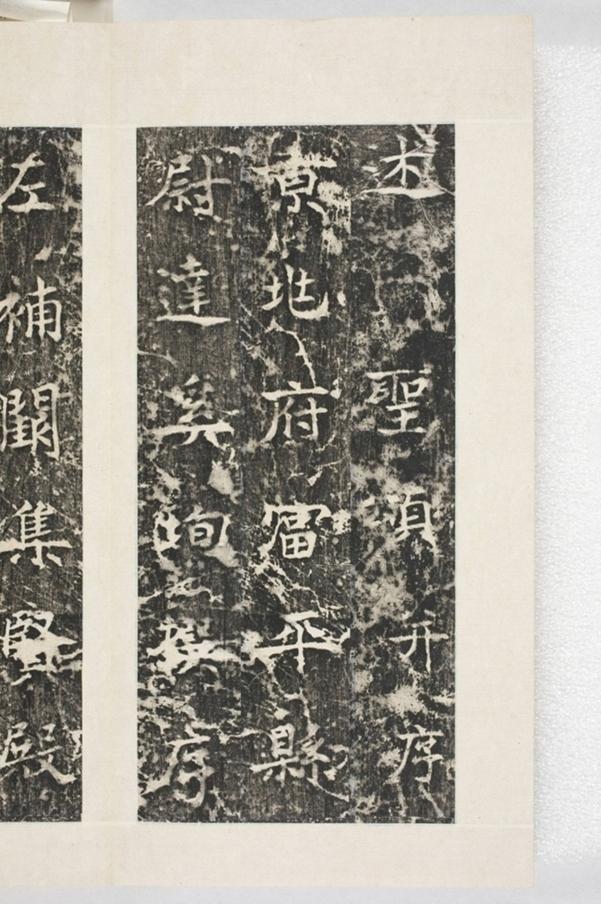 述聖頌并序
京兆府富平縣
尉達奚珣撰序
左補闕集賢殿